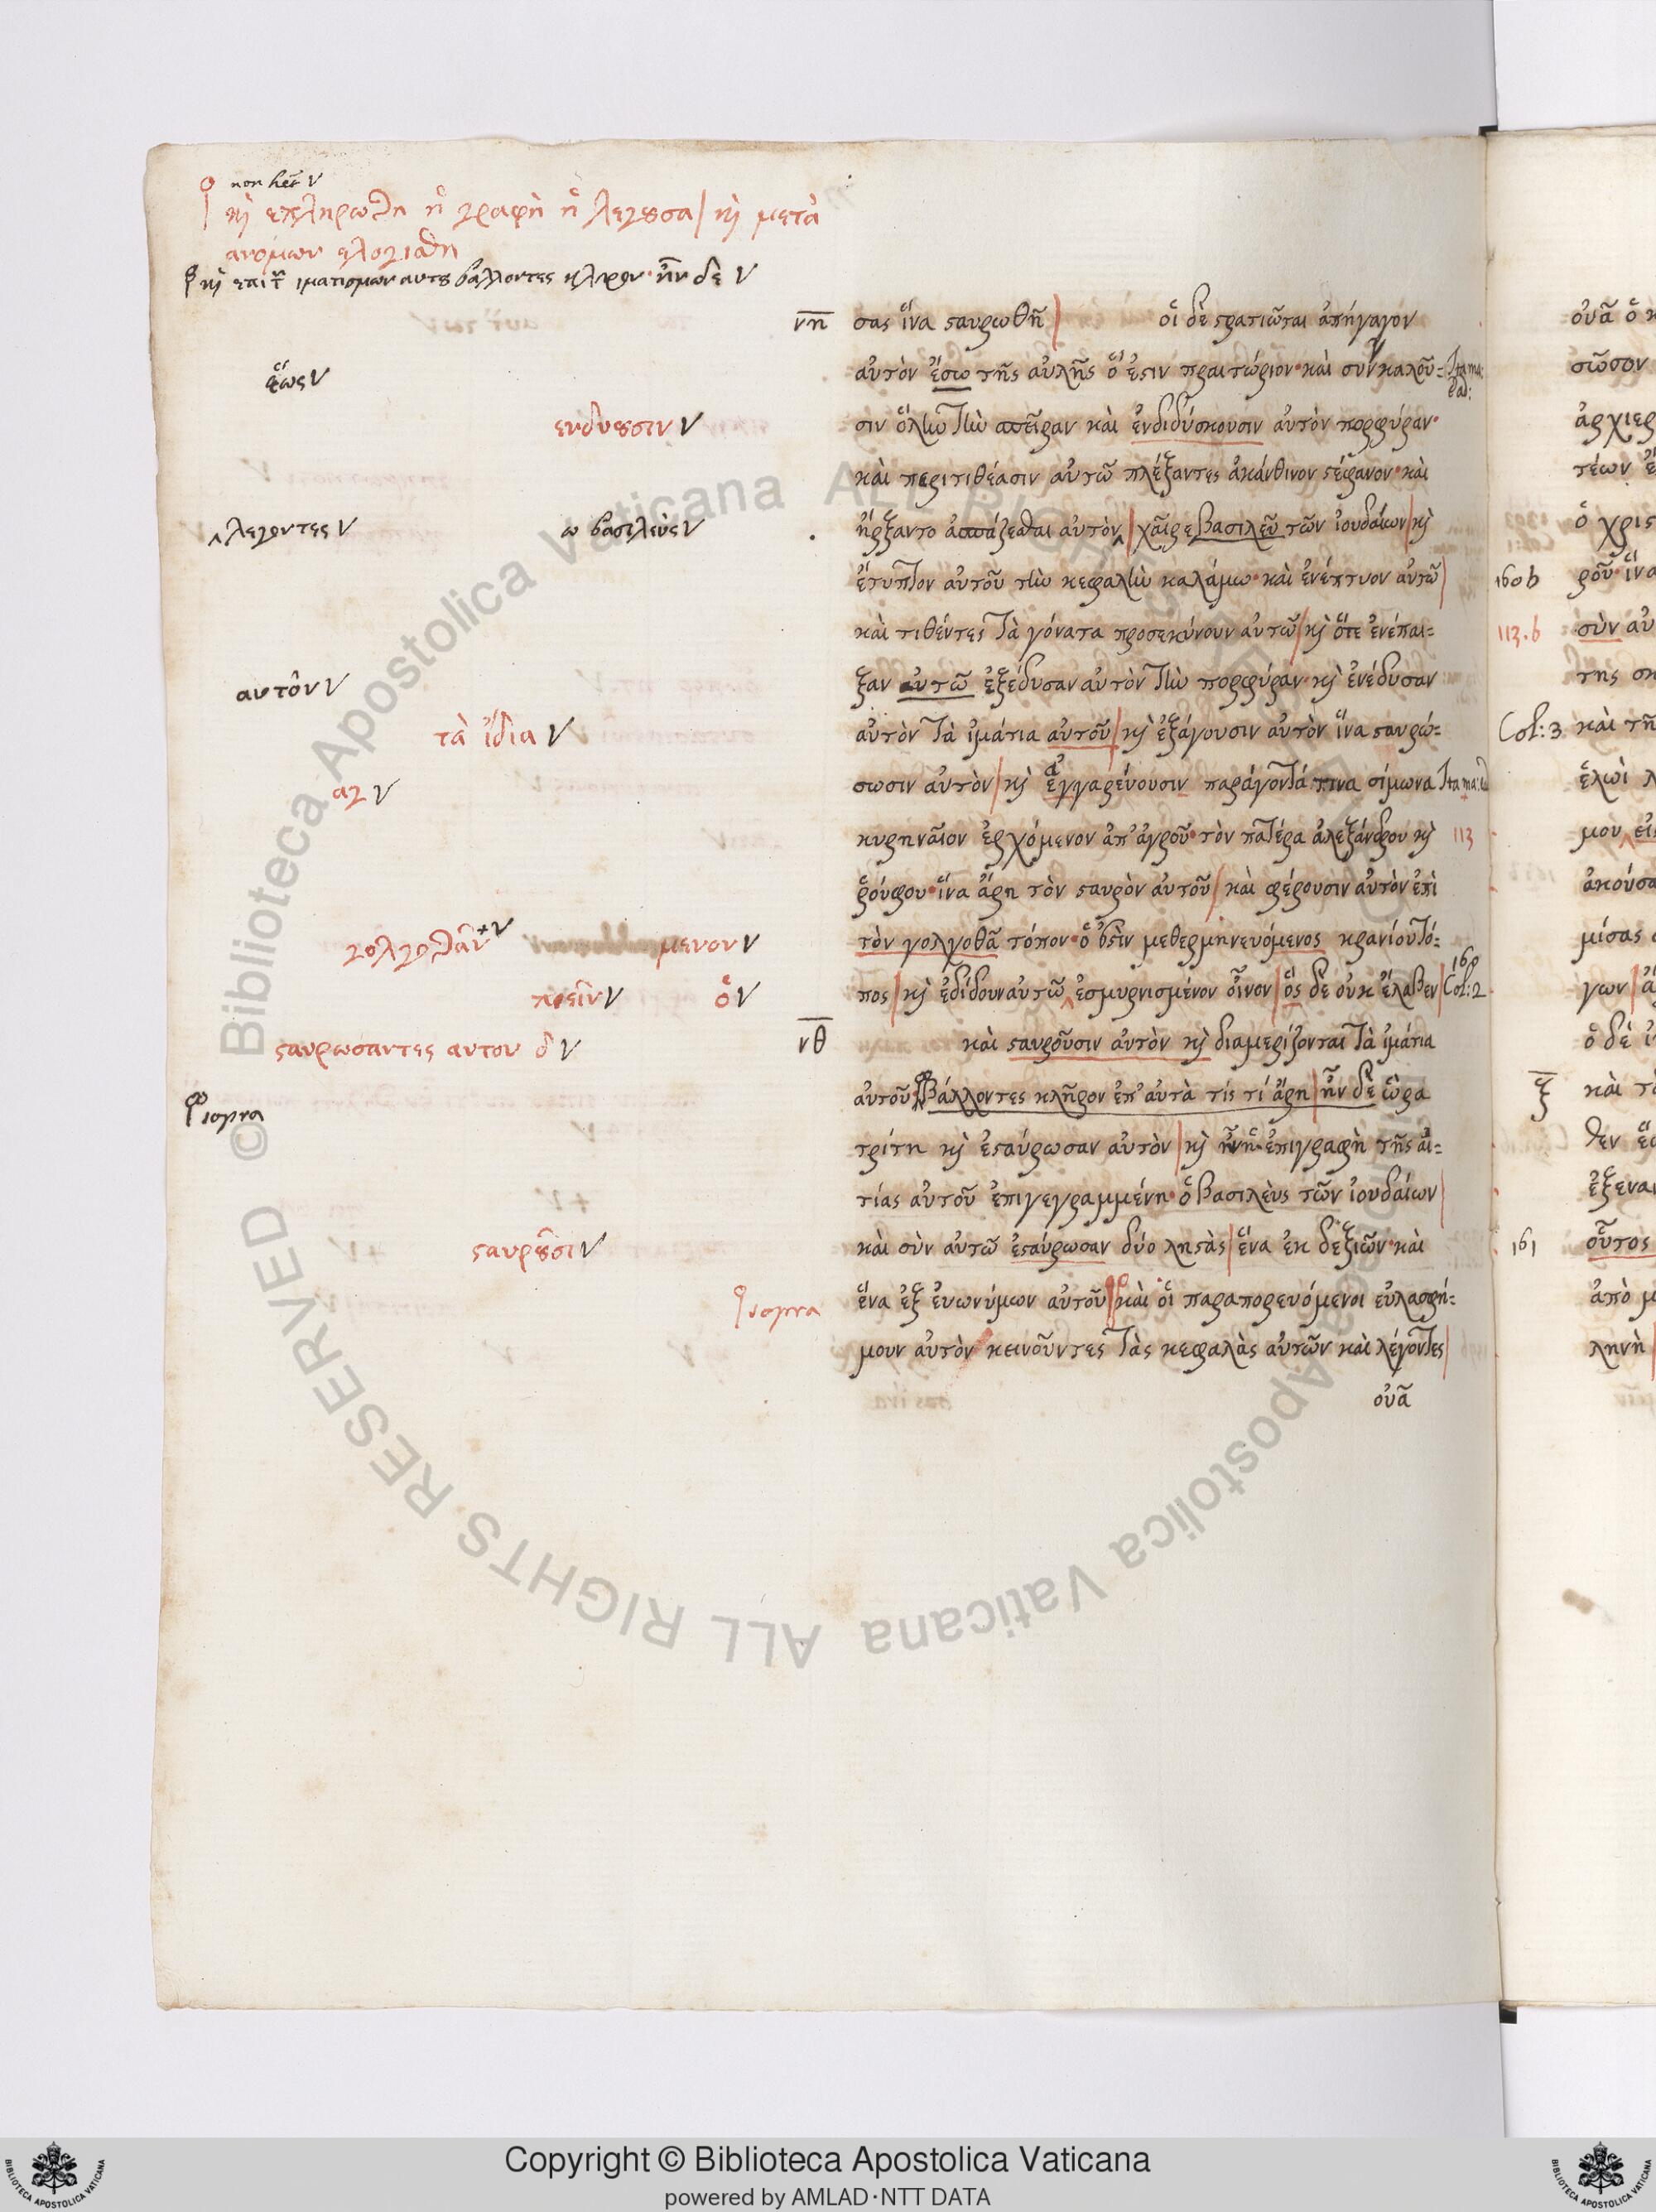 non het V
κ̀ επληρωθη ἡ γραφὴ ἡ λεγουσα / κ̀ μετὰ
ανομων ελογισθη
κ̀ επι τ̀ ιματισμων αυτου βάλλοντες κληρον· ἦν δὲ V
νη σας ἵνα σαυρωθῆ οἱ δὲ στρατιῶται ἀπήγαγον
ἕως V
αὐτὸν ἔσω τῆς αὐλῆς ὅ ἐστιν πραιτώριον· καὶ συνκαλοῦ= Ita ma:
ενδυουσιν V
σιν ὅλην τὴν σπεῖραν καὶ ἐνδιδύσκουσιν αὐτὸν πορφύραν·
καὶ περιτιθέασιν αὐτῶ πλέξαντες ἀκάνθινον στέφανον· καὶ
λεγοντες V ω βασιλεὺς V
ἤρξαντο ἀσπάζεσθαι αὐτὸν / χαῖρε βασιλεῦ τῶν ἰουδαίων / κ̀
ἔτυπτον αὐτοῦ τὴν κεφαλὴν καλάμω· καὶ ἐνέπτυον αὐτῶ
καὶ τιθέντες τὰ γόνατα προσεκύνουν αὐτῶ / κ̀ ὅτε ἐνέπαι=
αυτὸν V
ξαν αὐτῶ ἐξέδυσαν αὐτὸν τὴν πορφύραν· κ̀ ἐνέδυσαν
τὰ ἴδια V
αὐτὸν τὰ ἱμάτια αὐτοῦ / κ̀ ἐξάγουσιν αὐτὸν ἵνα σταυρώ=
αγ V
σωσιν αὐτὸν / κ̀ ἐγγαρεύουσιν παράγοντά τινα σίμωνα Ita ma:
κυρηναῖον ἐρχόμενον ἀπ' ἀγροῦ· τὸν πατέρα ἀλεξάνδρου κ̀ 113
ῥούφου· ἵνα ἄρη τὸν σταυρὸν αὐτοῦ / καὶ φέρουσιν αὐτὸν ἐπὶ
γολγοθᾶν + V μενον V
τὸν γολγοθᾶ τόπον· ὅ ἐστιν μεθερμηνευόμενος κρανίου τό=
πιεῖν V ὁ V
πος / κ̀ ἐδίδουν αὐτῶ ἐσμυρνισμένον οἶνον / ὃς δὲ οὐκ ἔλαβεν 160 Col: 2
σταυρωσαντες αυτον δ V
νθ καὶ σταυροῦσιν αὐτὸν κ̀ διαμερίζονται τὰ ἱμάτια
supra
αὐτοῦ βάλλοντες κλῆρον ἐπ' αὐτὰ τίς τί ἄρη / ἦν δὲ ὥρα
τρίτη κ̀ ἐσταύρωσαν αὐτὸν / κ̀ ἦν ἡ ἐπιγραφὴ τῆς αἰ=
τίας αὐτοῦ ἐπιγεγραμμένη· ὁ βασιλεὺς τῶν ἰουδαίων
σταυρουσι V
καὶ σὺν αὐτῶ ἐσταύρωσαν δύο λῃστὰς / ἕνα ἐκ δεξιῶν· καὶ
supra
ἕνα ἐξ εὐωνύμων αὐτοῦ / καὶ οἱ παραπορευόμενοι ἐβλασφή=
μουν αὐτὸν κεινοῦντες τὰς κεφαλὰς αὐτῶν καὶ λέγοντες
οὐᾶ
οὐᾶ ὁ
σῶσον
ἀρχιερ
τέων
ὁ χρις
160 b ροῦ· ἵνα
113.b σὺν αὐ
της σκ
Col: 3 καὶ τῆ
ἐλωὶ
μου εἰς
ἀκούσα
μίσας
γων / ἄ
ὁ δὲ ἰ
ξ καὶ τὸ
θεν ἕ
ἐξεναν
161 οὗτος
ἀπὸ μ
ληνὴ
© Biblioteca Apostolica Vaticana ALL RIGHTS RESERVED
Copyright © Biblioteca Apostolica Vaticana
powered by AMLAD·NTT DATA
BIBLIOTECA APOSTOLICA VATICANA
BIBLIOTECA APOSTOLICA VATICANA